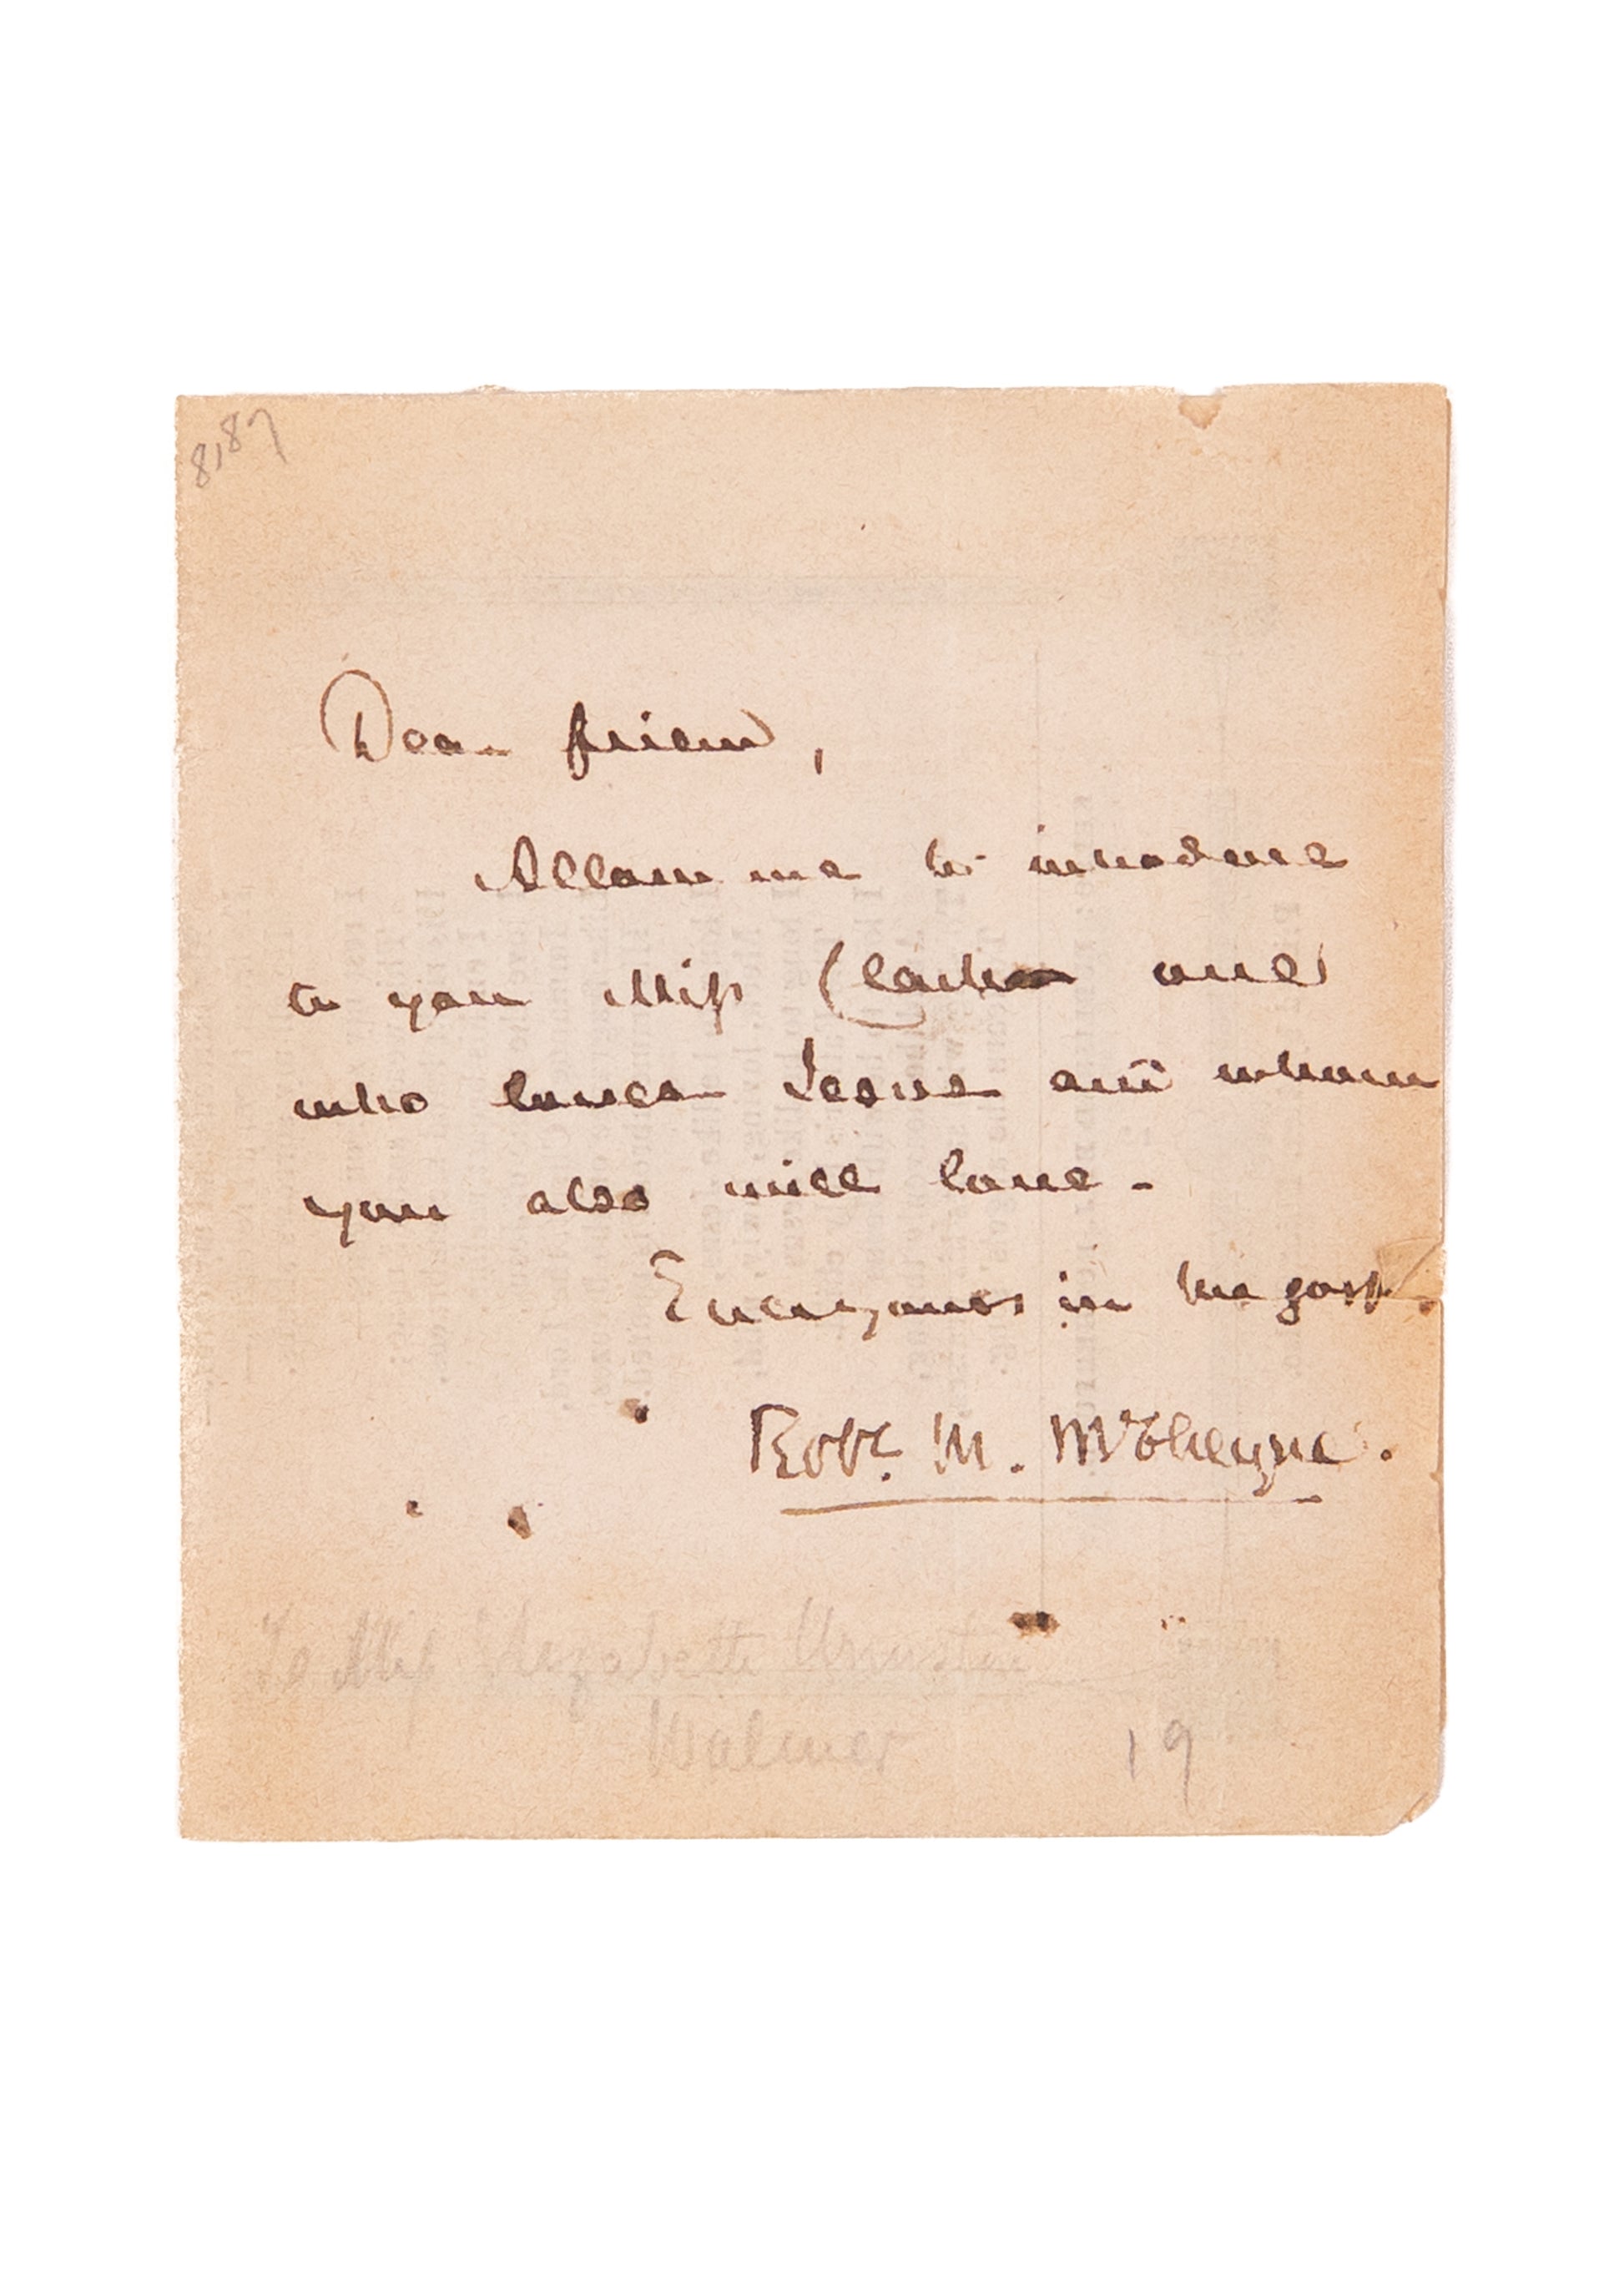 8,87
Dear friend,
Allow me to introduce
to you Miss one
who loves Jesus and whom
you also will love -
Ever yours in the gosp
Robt. M. McCheyne.
To Miss Elizabeth
Walmer
19